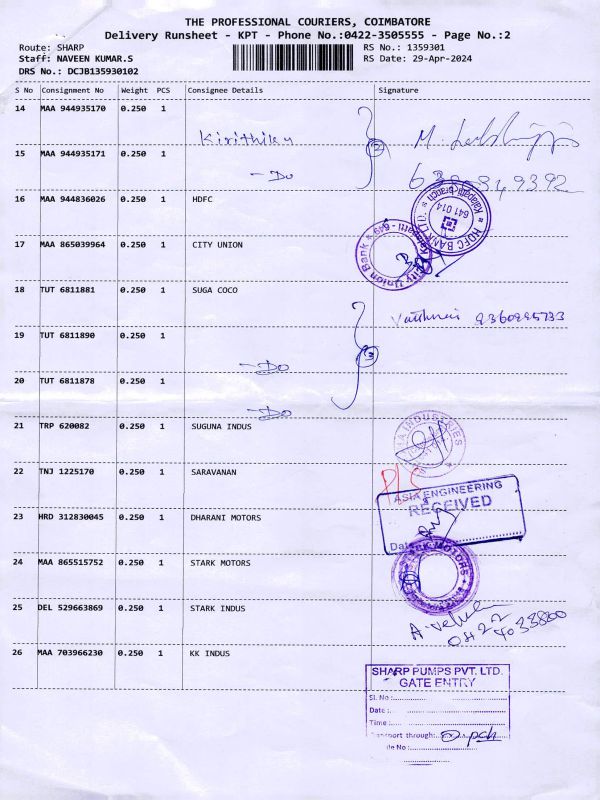 THE PROFESSIONAL COURIERS, COIMBATORE
Delivery Runsheet - KPT - Phone No.:0422-3505555 - Page No.:2
Route: SHARP
Staff: NAVEEN KUMAR.S
DRS No.: DCJB135930102
RS No.: 1359301
RS Date: 29-Apr-2024
S No Consignment No Weight PCS Consignee Details Signature
14 MAA 944935170 0.250 1
Kirithiku
15 MAA 944935171 0.250 1
- Do
2
16 MAA 944836026 0.250 1 HDFC
HDFC BANK LTD
Kalapatti Branch
641 014
17 MAA 865039964 0.250 1 CITY UNION
City Union Bank
18 TUT 6811881 0.250 1 SUGA COCO
9360995733
19 TUT 6811890 0.250 1
- Do
3
20 TUT 6811878 0.250 1
- Do
21 TRP 620082 0.250 1 SUGUNA INDUS
INDUSTRIES
22 TNJ 1225170 0.250 1 SARAVANAN
23 HRD 312830045 0.250 1 DHARANI MOTORS
ASIA ENGINEERING
RECEIVED
Date
24 MAA 865515752 0.250 1 STARK MOTORS
MOTORS
25 DEL 529663869 0.250 1 STARK INDUS
0422
4033800
26 MAA 703966230 0.250 1 KK INDUS
SHARP PUMPS PVT. LTD.
GATE ENTRY
Sl. No.:
Date :
Time :
Transport through: